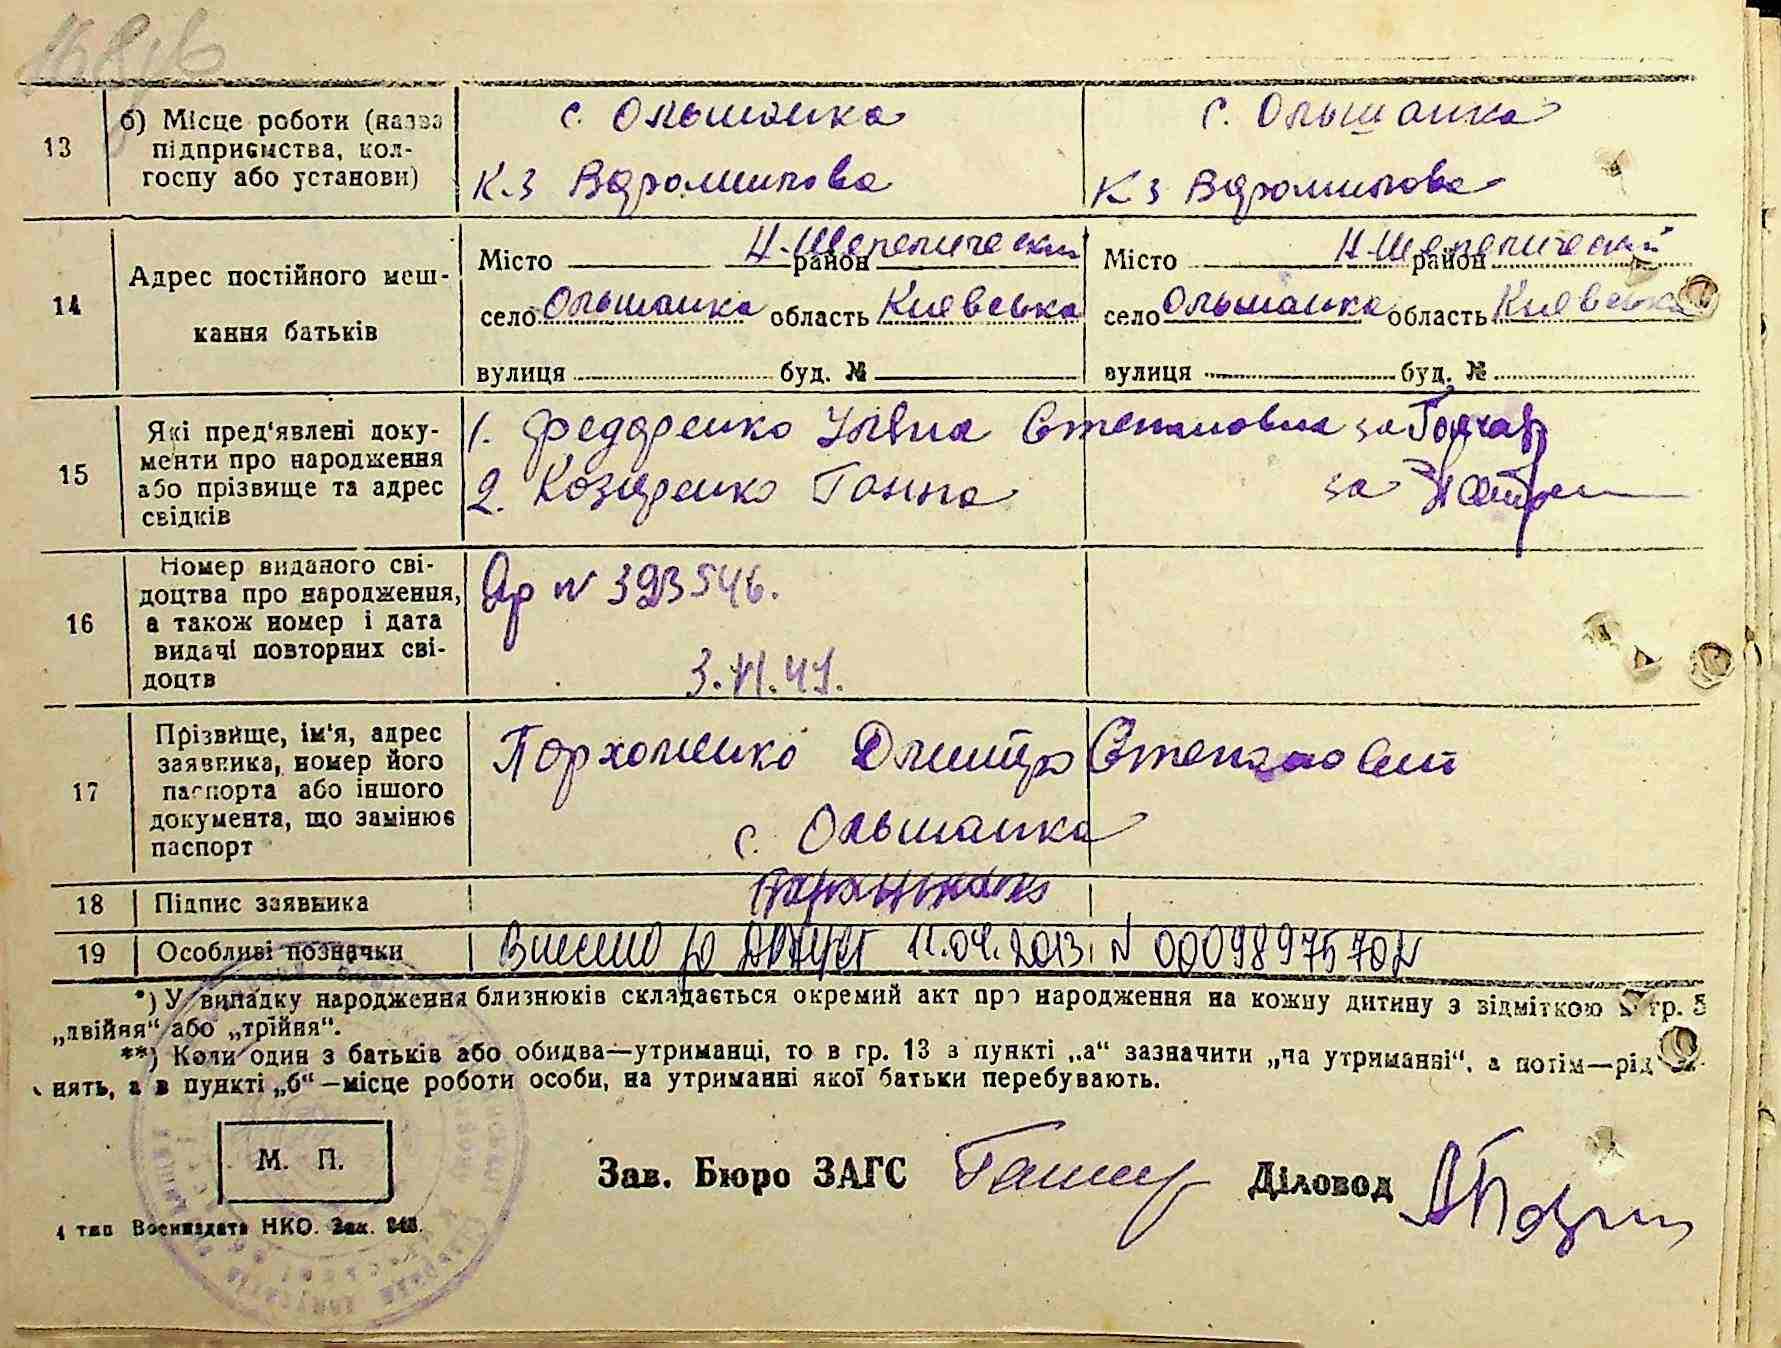 13
б) Місце роботи (назва
підприємства, кол-
госпу або установи)
с. Ольшанка
К-з Ворошилова
с. Ольшанка
К з Ворошилова
14
Адрес постійного меш-
кання батьків
Місто район Н-Шепелический
село Ольшанка область Киевська
вулиця буд. №
Місто район Н-Шепелический
село Ольшанка область Киевська
вулиця буд. №
15
Які пред'явлені доку-
менти про народження
або прізвище та адрес
свідків
1. Федоренко Уляна Степановна за
2. Козиренко Ганна за
16
Номер виданого сві-
доцтва про народження,
а також номер і дата
видачі повторних сві-
доцтв
N 393546.
3.VI.41.
17
Прізвище, ім'я, адрес
заявника, номер його
паспорта або іншого
документа, що замінює
паспорт
Пархоменко Дмитро Степанович
с. Ольшанка
18
Підпис заявника
19
Особливі позначки
Внесено до ДРАЦСГ 11.04.2013. N 00098975702
*) У випадку народження близнюків складається окремий акт про народження на кожну дитину з відміткою в гр. 5
„двійня“ або „трійня“.
**) Коли один з батьків або обидва—утриманці, то в гр. 13 в пункті „а“ зазначити „на утриманні“, а потім—рід
нять, а в пункті „б“—місце роботи особи, на утриманні якої батьки перебувають.
М. П.
Зав. Бюро ЗАГС
Діловод
4 тип Воениздата НКО. Зак.